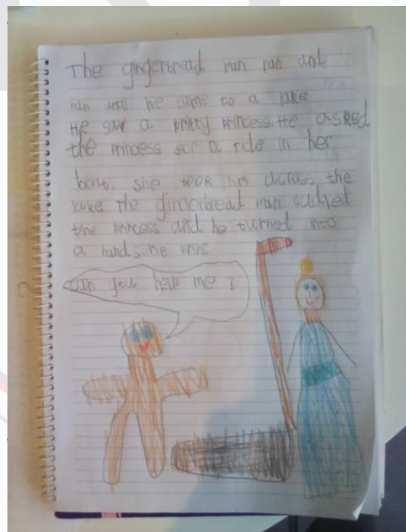 The gingerbread man ran and
ran until he came to a lake
He saw a pretty princess. He asked
the princess for a ride in her
boat. She took him across the
lake the gingerbread man kished
the princess and he turned into
a handsome
can you help me ?